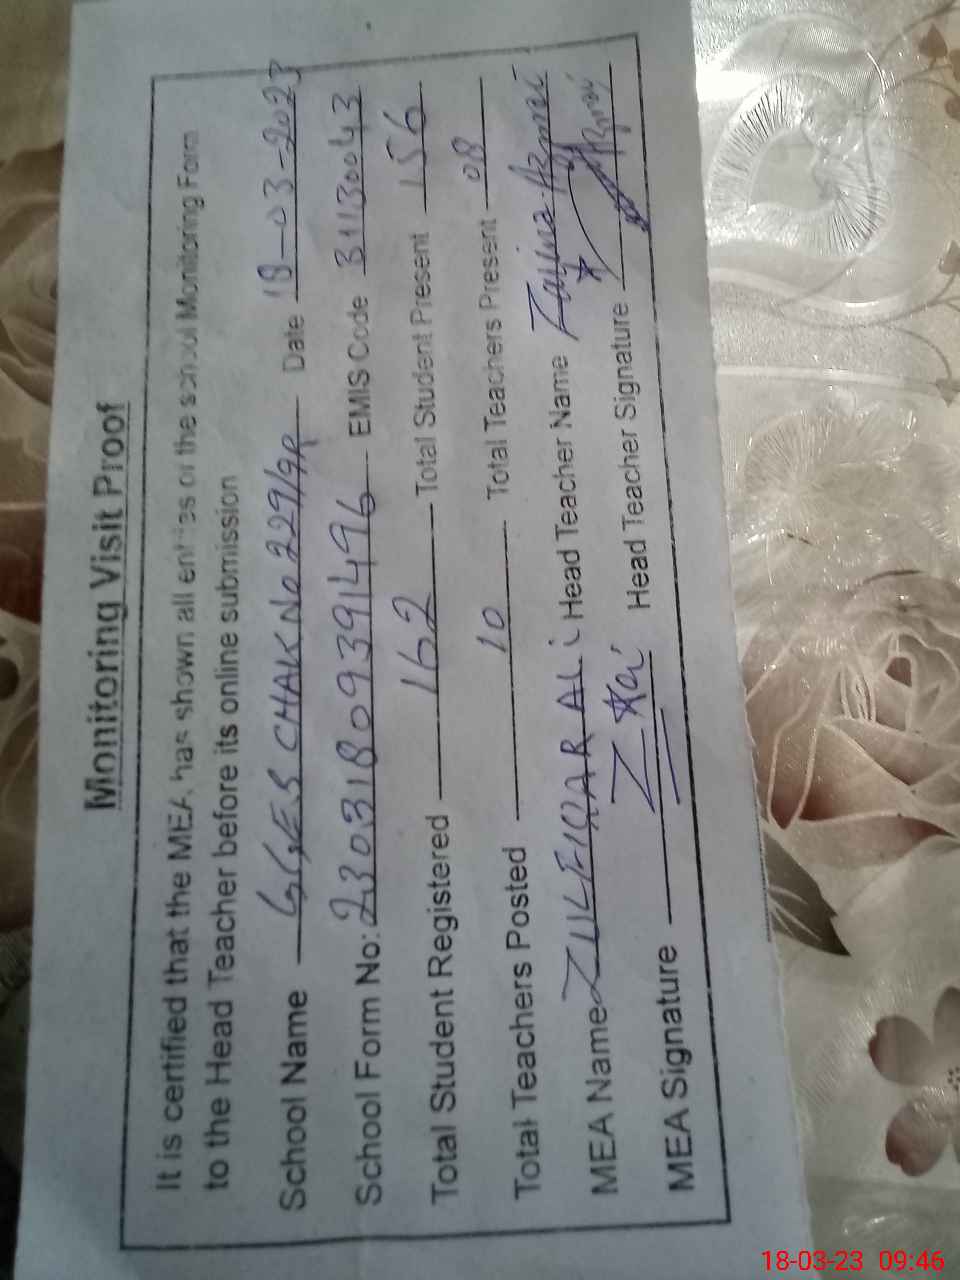 Monitoring Visit Proof
It is certified that the MEA has shown all entries of the school Monitoring Form
to the Head Teacher before its online submission
School Name GGES CHAK No 229/9R Date 18-03-2023
School Form No: 23031809391496 EMIS Code 31130043
Total Student Registered 162 Total Student Present 156
Total Teachers Posted 10 Total Teachers Present 08
MEA Name ZULFIQAR ALI Head Teacher Name Azmat
MEA Signature Head Teacher Signature
18-03-23 09:46